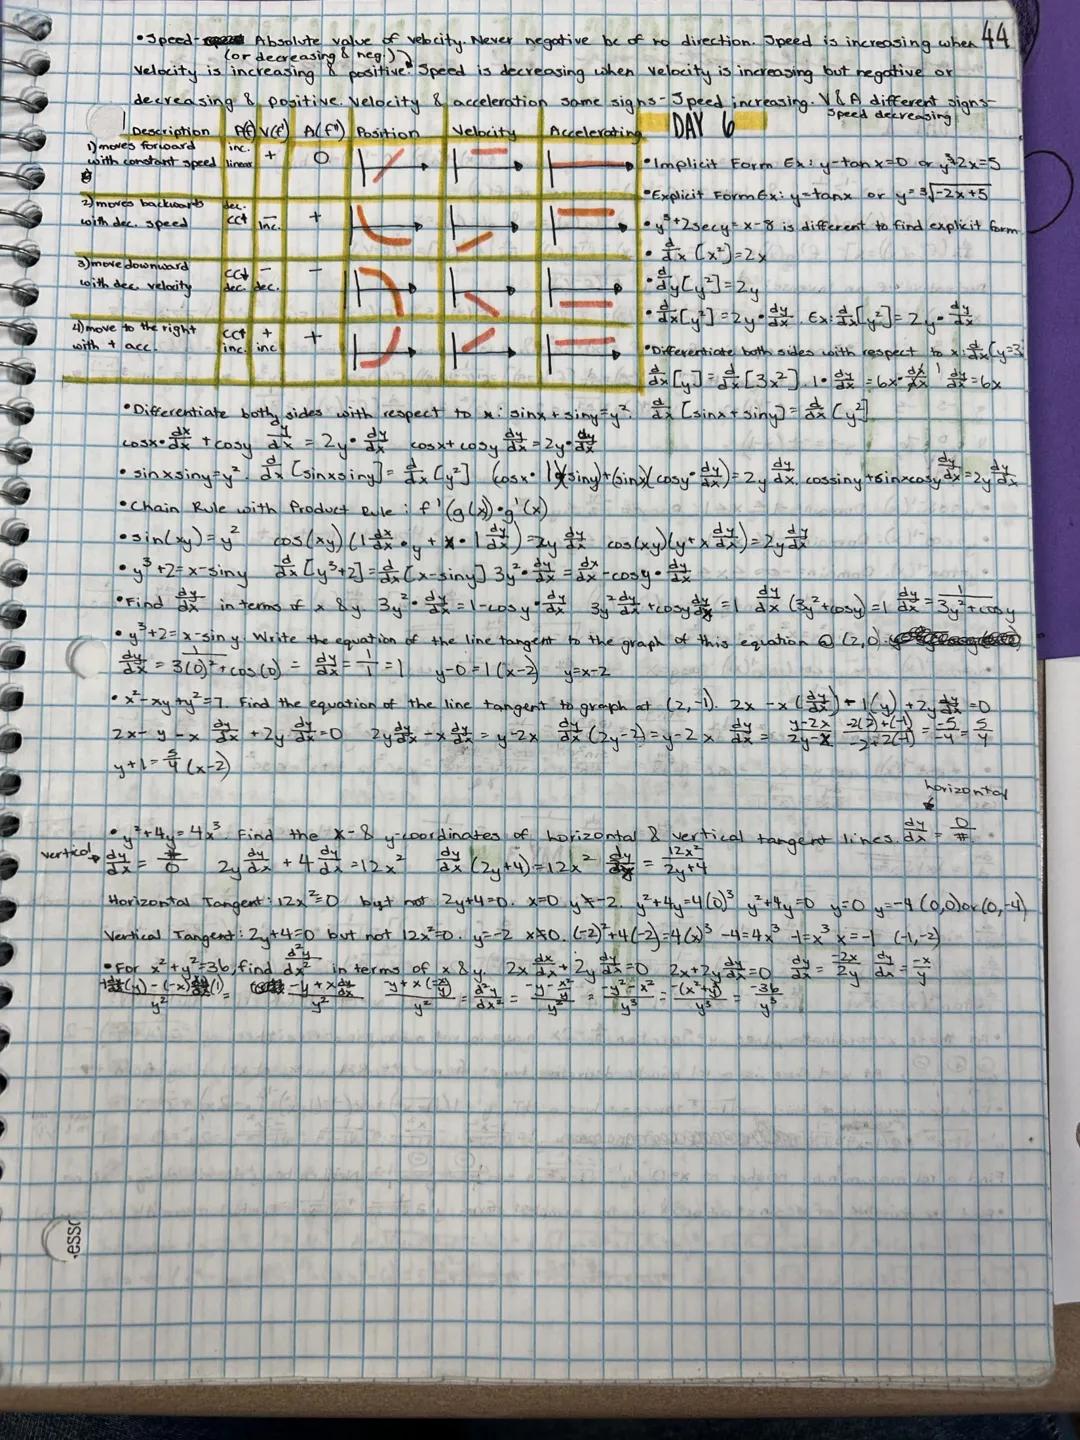 44
• Speed- Absolute value of velocity. Never negative bc of no direction. Speed is increasing when
(or decreasing & neg.)
velocity is increasing & positive. Speed is decreasing when velocity is increasing but negative or
decreasing & positive. Velocity & acceleration same signs- Speed increasing. V & A different signs-
Speed decreasing
Description P(f) V(f') A(f'') Position Velocity Accelerating
1) moves forward with constant speed inc. linear + 0
2) moves backwards with dec. speed dec. CC↑ - inc. +
3) move downward with dec. velocity CC↓ dec. - dec. -
4) move to the right with + acc. CC↑ inc. + inc +
DAY 6
• Implicit Form Ex: y-tanx=0 or y³+2x=5
• Explicit Form Ex: y=tanx or y=³√-2x+5
• y³+2secy=x-8 is different to find explicit form
• d/dx [x²]=2x
• d/dy[y²]=2y
• d/dx[y²]=2y·dy/dx. Ex: d/dx[y²]=2y·dy/dx
• Differentiate both sides with respect to x: d/dx[y=3
d/dx[y]=d/dx[3x²]. 1·dy/dx=6x·dx/dx 1 dy/dx=6x
• Differentiate both sides with respect to x: sinx+siny=y². d/dx[sinx+siny]=d/dx[y²]
cosx·dx/dx+cosy dy/dx=2y·dy/dx cosx+cosy dy/dx=2y·dy/dx
• sinxsiny=y². d/dx[sinxsiny]=d/dx[y²] (cosx·1)(siny)+(sinx)(cosy·dy/dx)=2y dy/dx. cossiny+sinxcosy dy/dx=2y dy/dx
• Chain Rule with Product Rule: f'(g(x))·g'(x)
• sin(xy)=y² cos(xy)(1·dx/dx·y+x·1 dy/dx)=2y dy/dx cos(xy)(y+x dy/dx)=2y dy/dx
• y³+2=x-siny d/dx[y³+2]=d/dx[x-siny] 3y²·dy/dx=dx/dx-cosy·dy/dx
• Find dy/dx in terms of x & y. 3y²·dy/dx=1-cosy·dy/dx 3y² dy/dx+cosy dy/dx=1 dy/dx(3y²+cosy)=1 dy/dx=1/3y²+cosy
• y³+2=x-siny. Write the equation of the line tangent to the graph of this equation @ (2,0).
dy/dx=1/3(0)²+cos(0)=dy/dx=1/1=1 y-0=1(x-2) y=x-2
• x²-xy+y²=7. Find the equation of the line tangent to graph at (2,-1). 2x-x(dy/dx)+-1(y)+2y dy/dx=0
2x-y-x dy/dx+2y dy/dx=0 2y dy/dx-x dy/dx=y-2x dy/dx(2y-2)=y-2x dy/dx=y-2x/2y-x -2(2)+(-1)/-2+2(-1)=-5/-4=5/4
y+1=5/4(x-2)
horizontal
• y²+4y=4x³. Find the x- & y-coordinates of horizontal & vertical tangent lines. dy/dx=0/#
vertical→ dy/dx=#/0 2y dy/dx+4 dy/dx=12x² dy/dx(2y+4)=12x² dy/dx=12x²/2y+4
Horizontal Tangent: 12x²=0 but not 2y+4=0. x=0 y≠-2. y²+4y=4(0)³ y²+4y=0 y=0 y=-4 (0,0) or (0,-4)
Vertical Tangent: 2y+4=0 but not 12x²=0. y=-2 x≠0. (-2)²+4(-2)=4(x)³ -4=4x³ -1=x³ x=-1 (-1,-2)
• For x²+y²=36, find d²y/dx² in terms of x & y. 2x dx/dx+2y dy/dx=0 2x+2y dy/dx=0 dy/dx=-2x/2y dy/dx=-x/y
(y)-(-x)dy/dx(1)/y²= -y+x dy/dx/y² -y+x(-x/y)/y²=d²y/dx²=-y-x²/y/y²=-y²-x²/y³=-(x²+y²)/y³=-36/y³